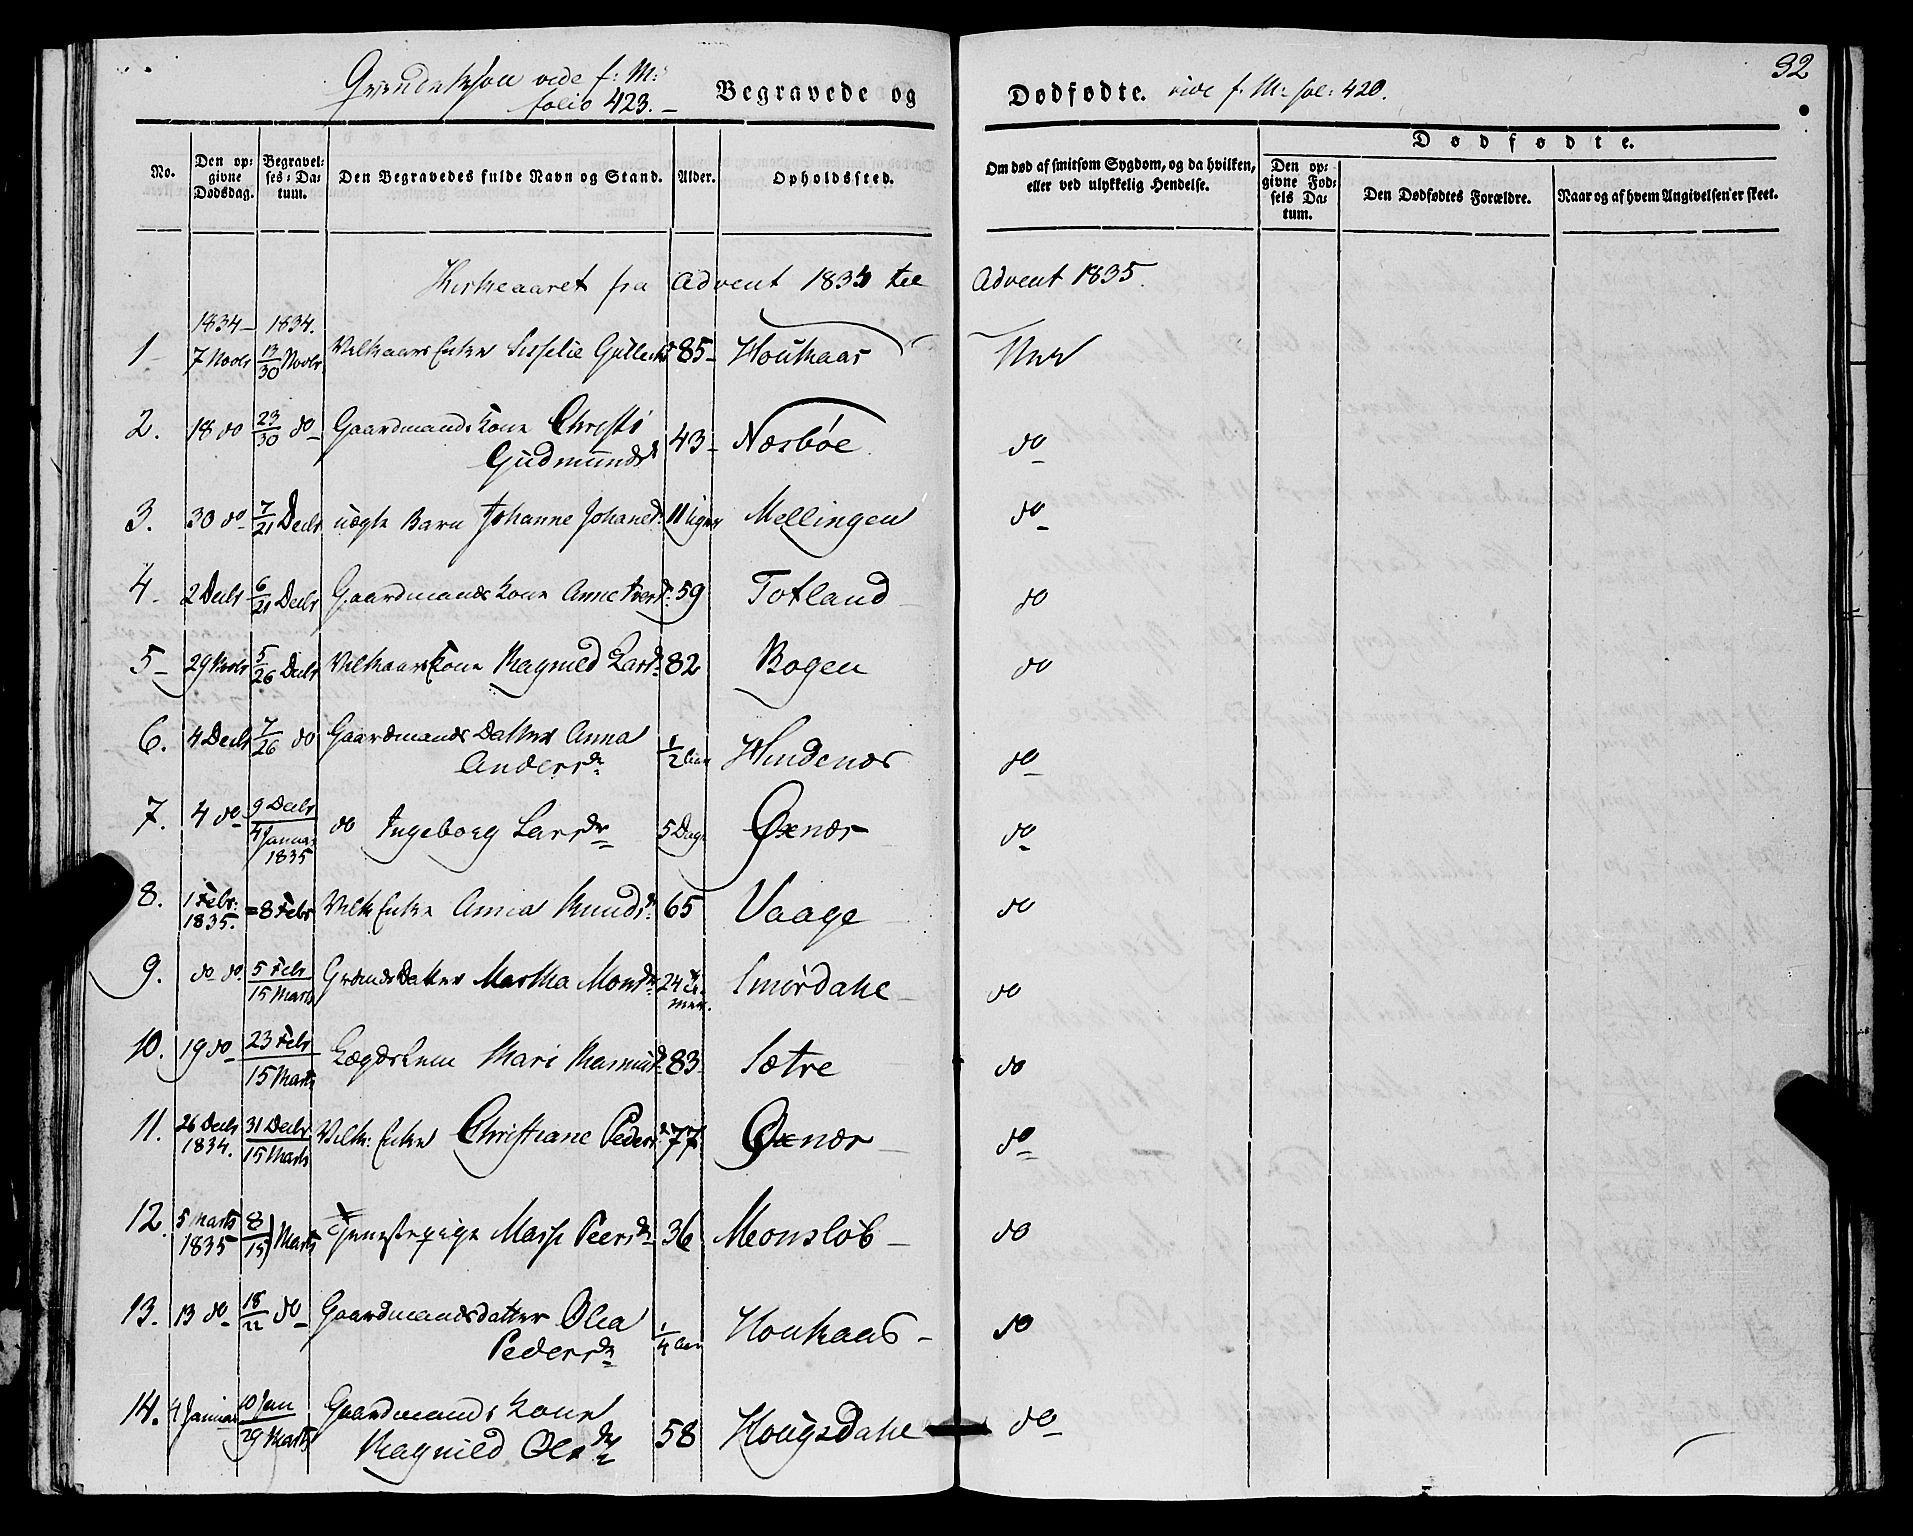 Qvindekjøn vide f: M:
folio 423. –
Begravede og
Dødfødte. vide f: M: fol: 420.
32
No.
Den opgivne Dødsdag.
Begravelses-Datum.
Den Begravedes fulde Navn og Stand.
Alder.
Opholdssted.
Om død af smitsom Sygdom, og da hvilken, eller ved ulykkelig Hendelse.
Dødfødte.
Den opgivne Fødsels Datum.
Den Dødfødtes Forældre.
Naar og af hvem Angivelsen er skeet.
Kirkeaaret fra Advent 1834 til Advent 1835.
1834– 1834.
1– 7 Novbr 13/30 Novbr Vilkaars Enke Sisselie 85– Houkaas
2. 18 do 23/30 do– Gaardmands Kone Christi
Gudmundsd 43– Næsbøe do
3. 30 do– 7/21 Decbr uægte Barn Johanne Johanesd: 11 Uger Mellingen do
4. 2 Decbr 6/21 Decbr Gaardmands Kone Anne Iversd: 59 Totland do
5– 29 Novbr 5/26 Decbr Vilkaars Kone Ragnild Larsd: 82 Bogen do
6. 4 Decbr 7/26 do Gaardmands Datter Anna
Andersdr 1/2 Aar Hindenæs do
7. 4 do– 9 Decbr/4 Januar 1835 do Ingeborg Larsdr 5 Dage Oxnæs do
8. 1 Febr: 1835. = 8 Febr Vilk Enke Anna Knudsd: 65 Vaage do
9. do do 5 Febr/15 Marts Datter Martha Monsdr 24 Smørdahl do
10. 19 do– 23 Febr/15 Marts Lægdslem Mari Rasmusd: 83 Sætre do
11. 26 Decbr 1834. 31 Decbr/15 Marts Vilk: Enke Christiane Pedersd 77 Oxnæs do
12. 5 Marts 1835 8/15 Marts Tjenestepige Peersdr 36 Monsløb do
13. 13 do– 18/22 do– Gaardmandsdatter Olia
Pedersdr 1/4 Aar Houkaas do
14. 4 Januar 10 Jan/29 Marts Gaardmands Kone
Ragnild Olsdr 58 Hougsdahl do–